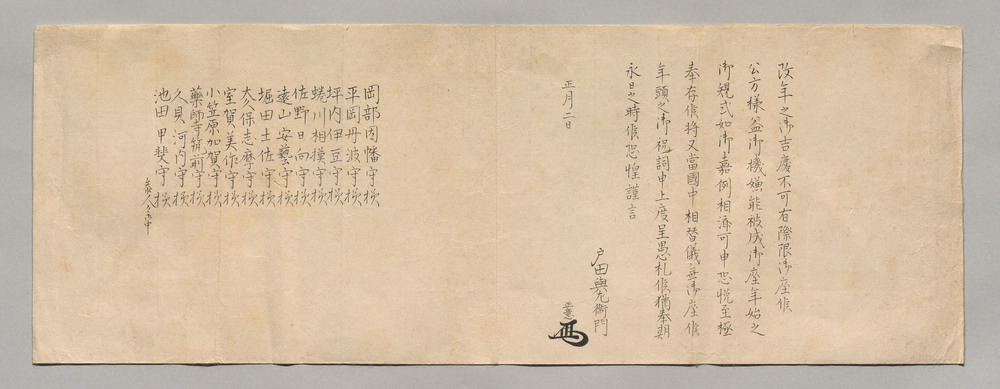 改年之御吉慶不可有際限御座候
公方様益御機嫌能被成御座年始之
御規式如御嘉例相済可申恐悦至極
奉存候将又當國中相替儀無御座候
年頭之御祝詞申上度呈愚札候猶奉期
永日之時候恐惶謹言
戸田與左衛門
正月二日
岡部因幡守様
平岡丹波守様
坪内伊豆守様
蜷川相模守様
佐野日向守様
遠山安藝守様
堀田土佐守様
大久保志摩守様
室賀美作守様
小笠原加賀守様
藥師寺筑前守様
久貝河内守様
池田甲斐守様
人々御中